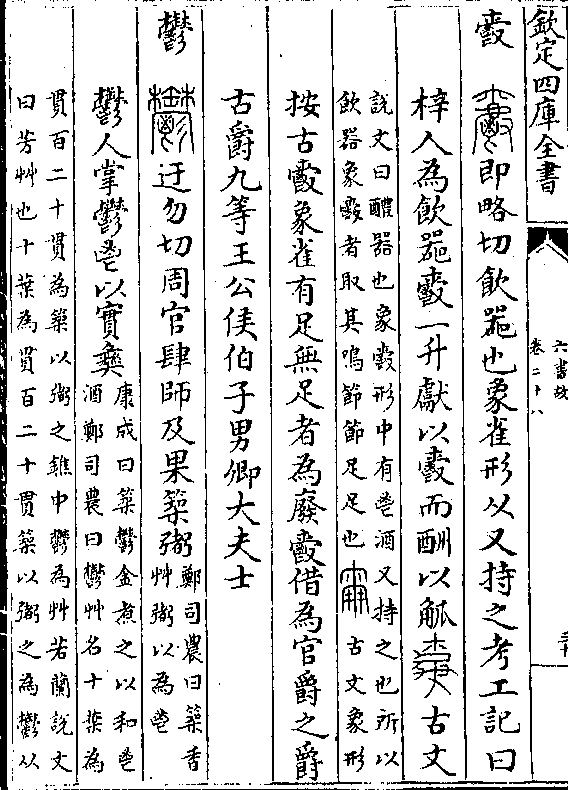 欽定四庫全書
六書故
卷二十八
爵
即略切飲器也象雀形从又持之考工記曰
梓人為飲器爵一升獻以爵而酬以觚
古文
說文曰禮器也象爵形中有鬯酒又持之也所以
飲器象爵者取其鳴節節足足也
古文象形
按古爵象雀有足無足者為廢爵借為官爵之爵
古爵九等王公侯伯子男卿大夫士
鬱
迂勿切周官肆師及果築鬻
鄭司農曰築香
艸鬻以為鬯
鬱人掌鬱鬯以實彝
康成曰築鬱金煮之以和鬯
酒鄭司農曰鬱艸名十葉為
貫百二十貫為築以鬻之錐中鬱為艸若蘭說文
曰芳艸也十葉為貫百二十貫築以鬻之為鬱从